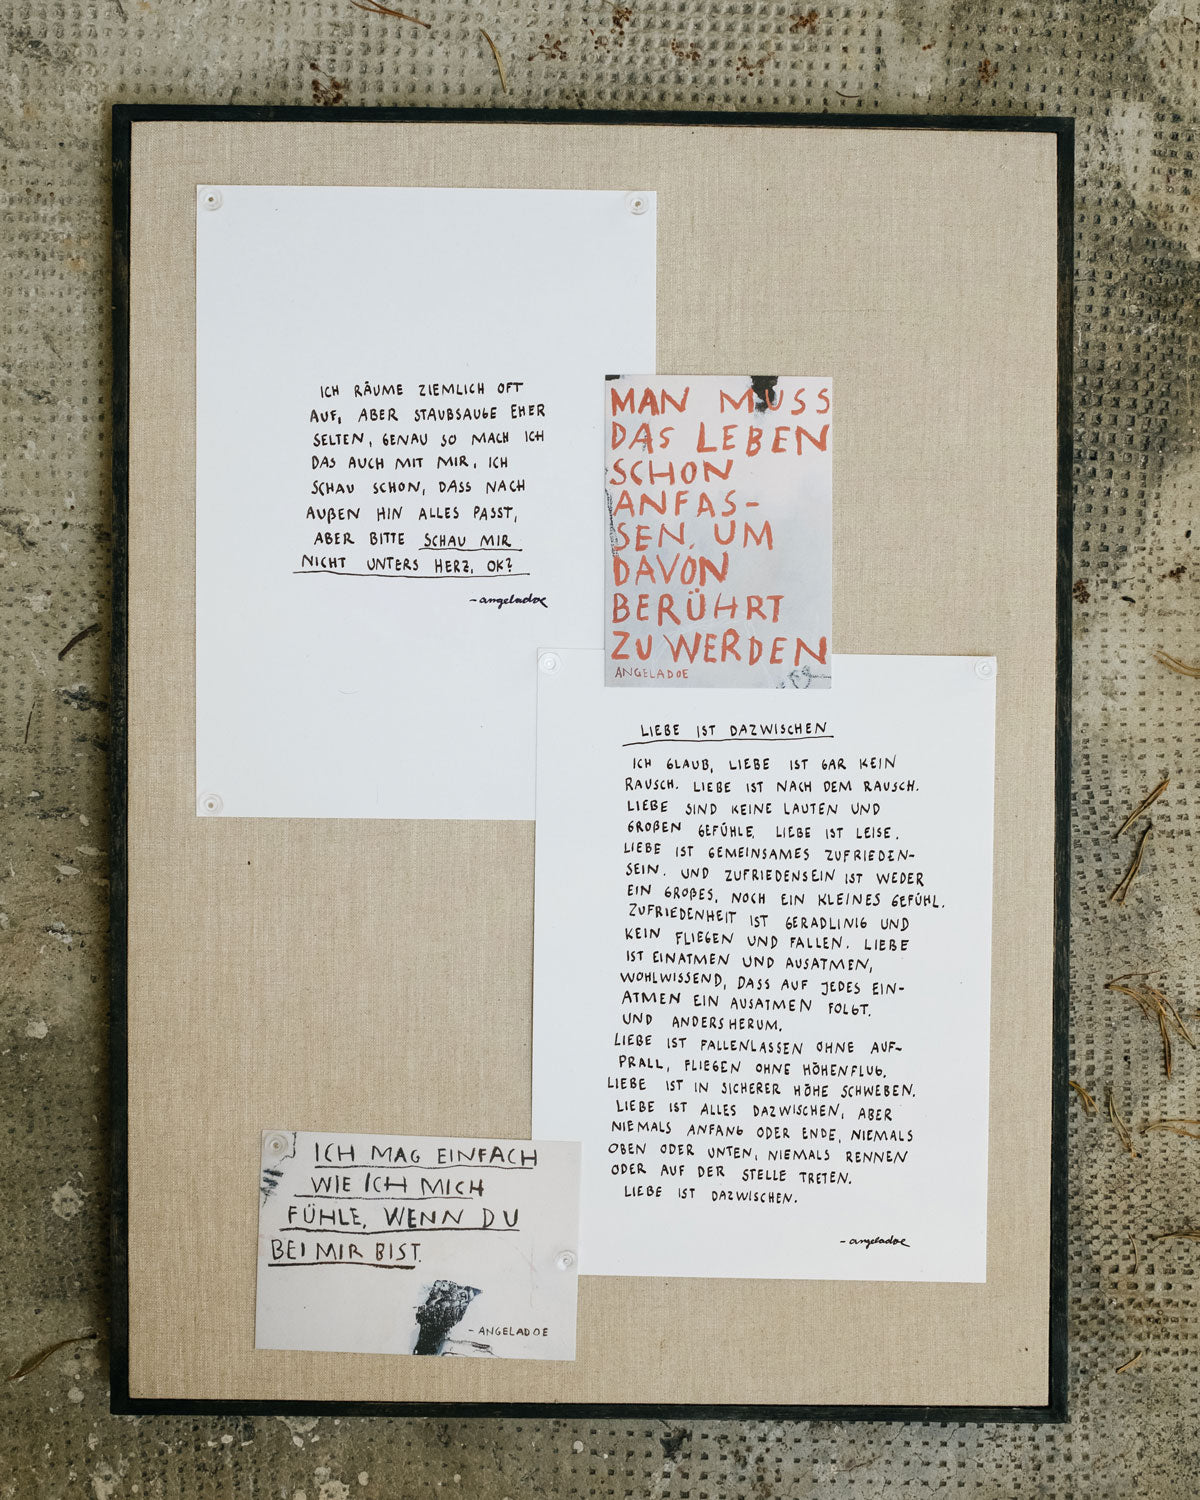 ICH RÄUME ZIEMLICH OFT
AUF, ABER STAUBSAUGE EHER
SELTEN, GENAU SO MACH ICH
DAS AUCH MIT MIR. ICH
SCHAU SCHON, DASS NACH
AUßEN HIN ALLES PASST,
ABER BITTE SCHAU MIR
NICHT UNTERS HERZ, OK?
- angeladoe
MAN MUSS
DAS LEBEN
SCHON
ANFAS-
SEN, UM
DAVON
BERÜHRT
ZU WERDEN
ANGELADOE
LIEBE IST DAZWISCHEN
ICH GLAUB, LIEBE IST GAR KEIN
RAUSCH. LIEBE IST NACH DEM RAUSCH.
LIEBE SIND KEINE LAUTEN UND
GROßEN GEFÜHLE. LIEBE IST LEISE.
LIEBE IST GEMEINSAMES ZUFRIEDEN-
SEIN. UND ZUFRIEDENSEIN IST WEDER
EIN GROßES, NOCH EIN KLEINES GEFÜHL.
ZUFRIEDENHEIT IST GERADLINIG UND
KEIN FLIEGEN UND FALLEN. LIEBE
IST EINATMEN UND AUSATMEN,
WOHLWISSEND, DASS AUF JEDES EIN-
ATMEN EIN AUSATMEN FOLGT.
UND ANDERSHERUM.
LIEBE IST FALLENLASSEN OHNE AUF-
PRALL, FLIEGEN OHNE HÖHENFLUG.
LIEBE IST IN SICHERER HÖHE SCHWEBEN.
LIEBE IST ALLES DAZWISCHEN, ABER
NIEMALS ANFANG ODER ENDE, NIEMALS
OBEN ODER UNTEN, NIEMALS RENNEN
ODER AUF DER STELLE TRETEN.
LIEBE IST DAZWISCHEN.
- angeladoe
ICH MAG EINFACH
WIE ICH MICH
FÜHLE, WENN DU
BEI MIR BIST.
- ANGELADOE